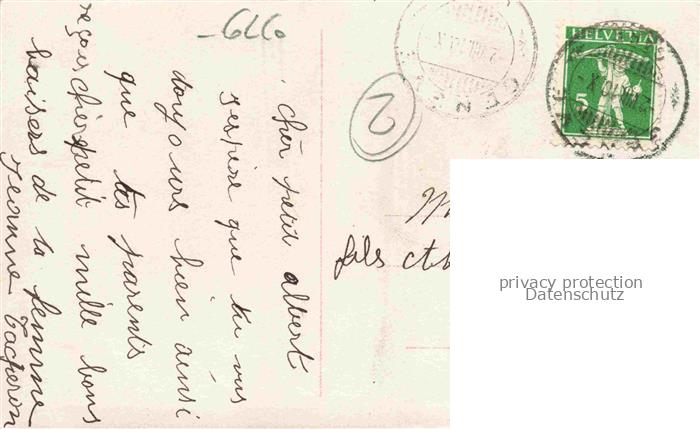 cher petit albert
j'espere que tu vas
toujours bien ainsi
que tes parents
reçois cher petit mille bons
baisers de ta femme
Jeanne
-626
2
HELVETIA
5
GENÈVE
fils
privacy protection
Datenschutz